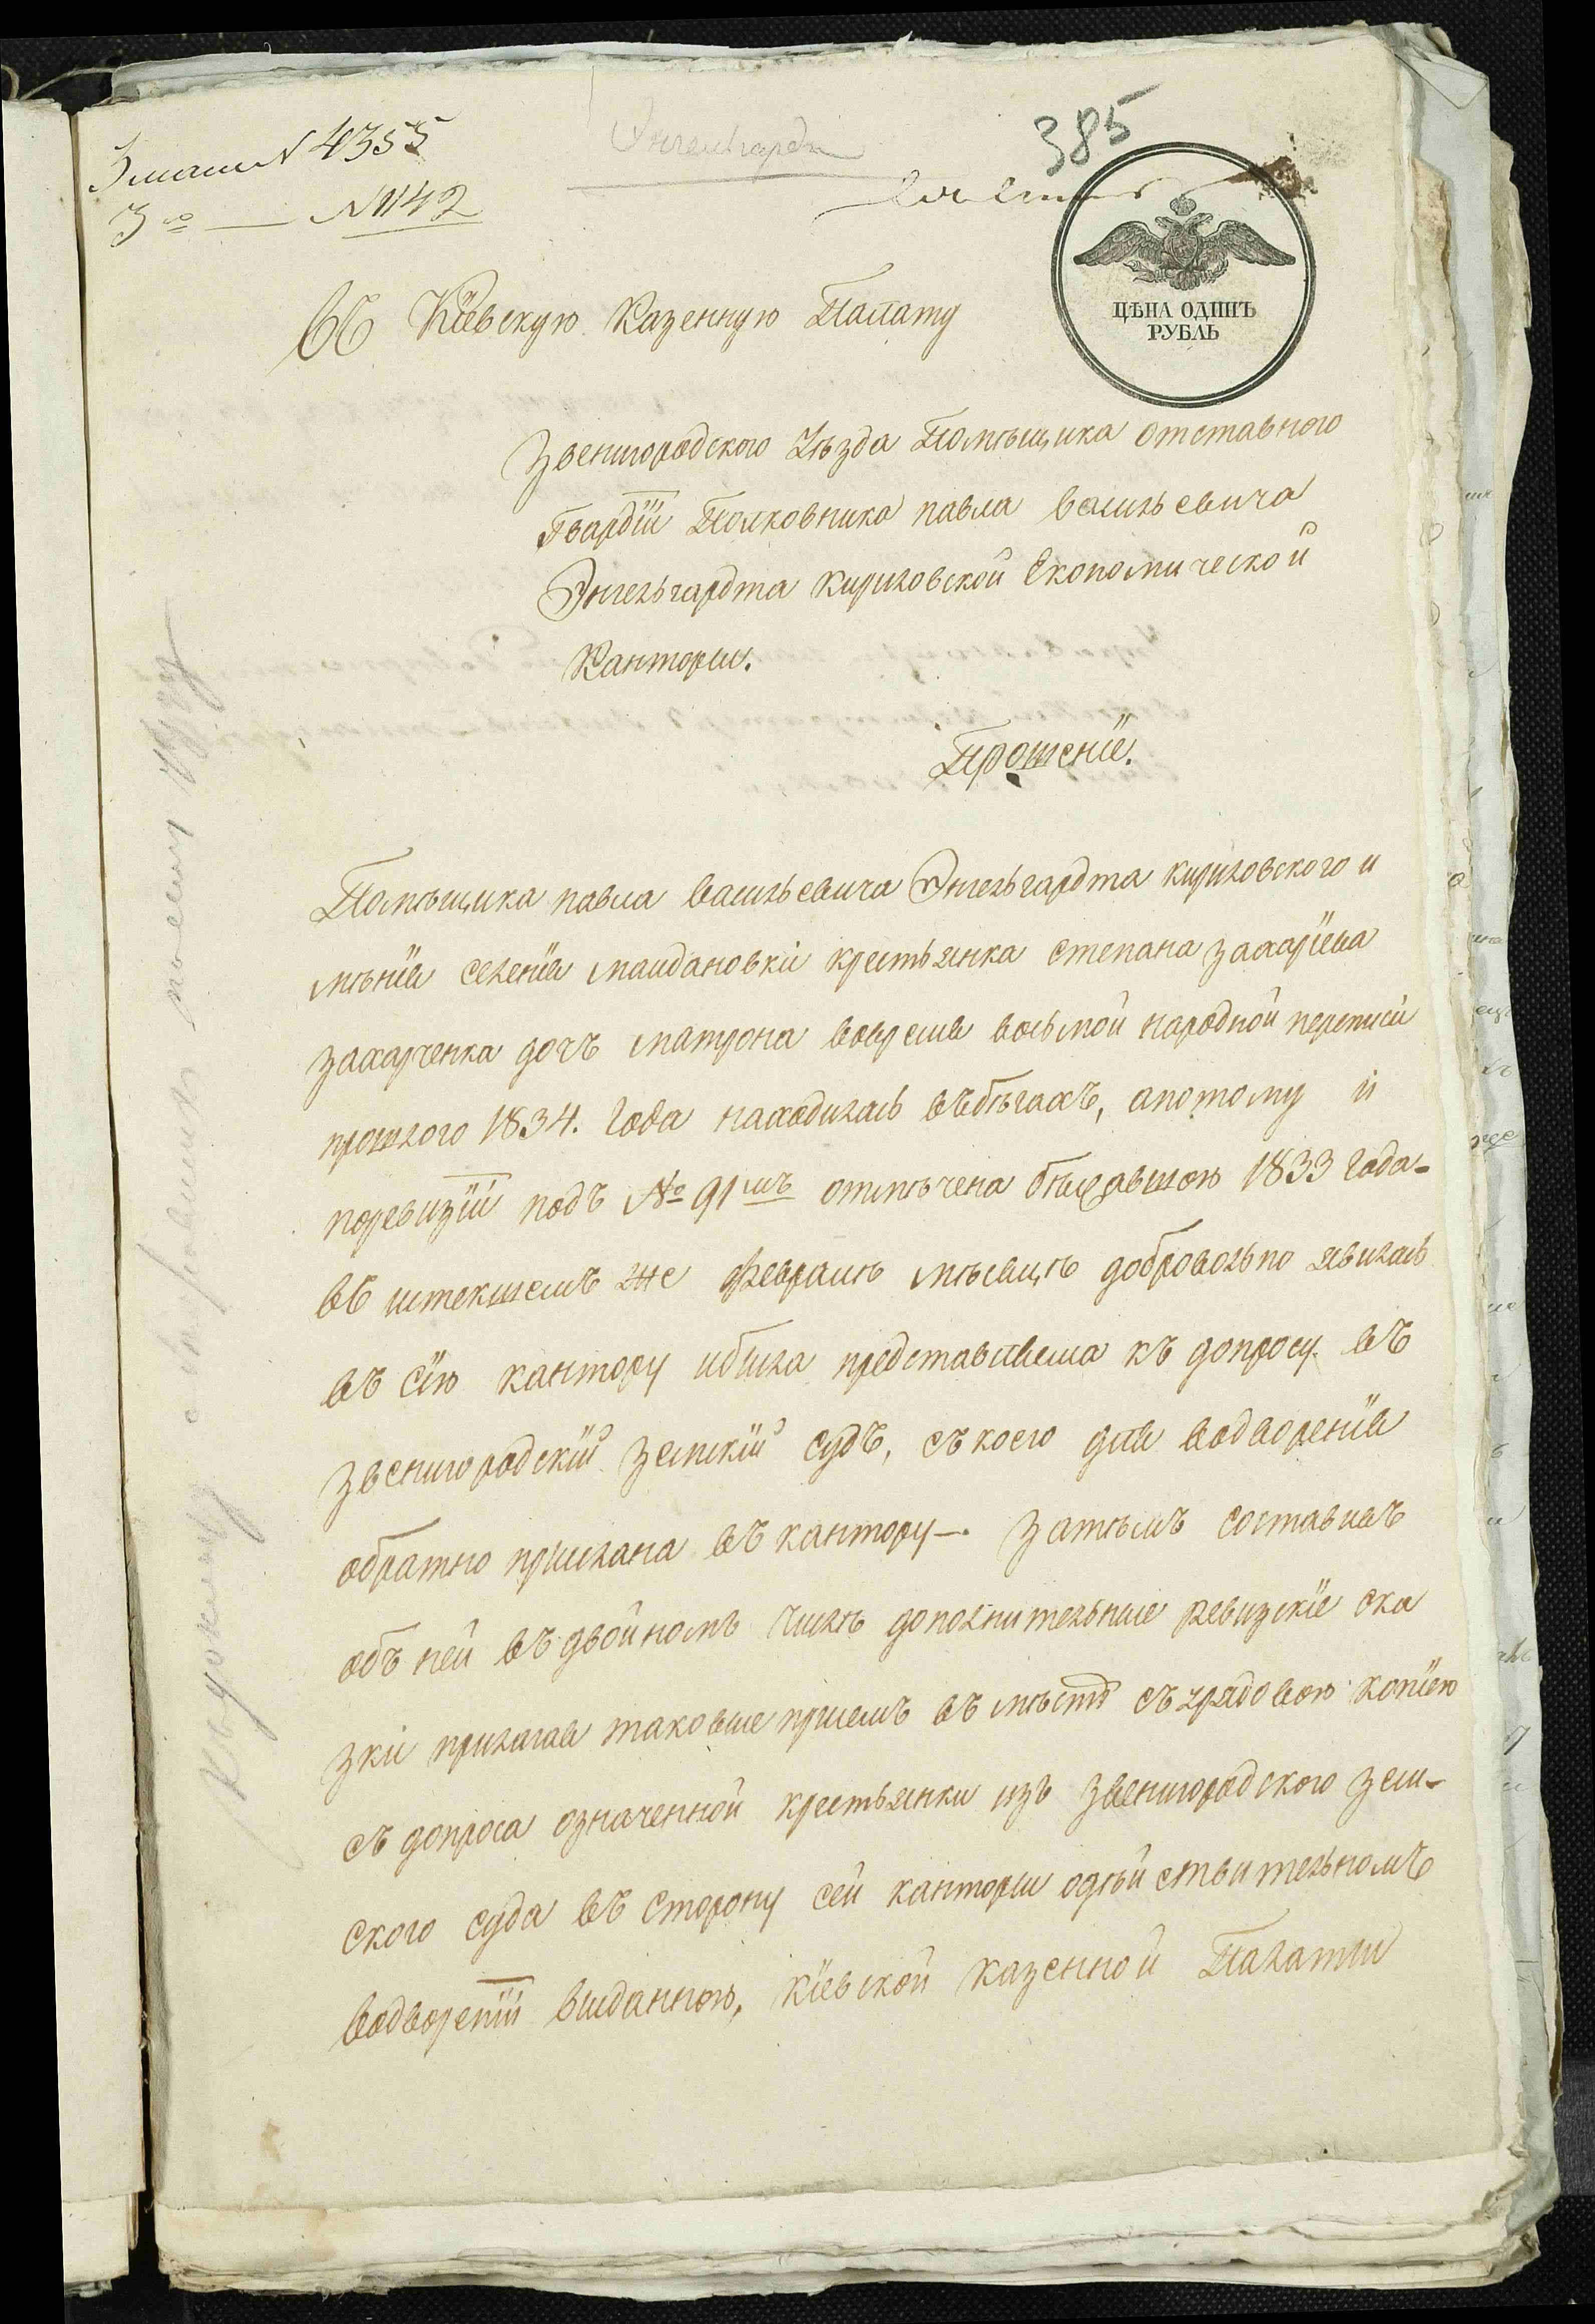 3 мая № 4355
385
№ 1142
ЦѢНА ОДИНЪ
РУБЛЬ
Въ Кіевскую Казенную Палату
Звенигородского Уѣзда Помѣщика отставного
Гвардіи Полковника павла васильевича
Энгельгардта Кириловской Економической
Канторы.
Прошеніе.
Помѣщика павла васильевича Энгельгардта кириловского и
мѣнія селенія маидановки крестьянка степана захаріева
захарченка дочъ матрона вовремя восьмой народной переписи
прошлого 1834. Года находилась въбѣгахъ, апотому и
поревизіи подъ № 91мъ отмѣчена бѣжавшою 1833 Года-
въ истекшемъ же февралѣ мѣсяцѣ добровольно явилась
въ сію кантору ибыла представляема къ допросу въ
звенигородскій земскій судъ, съкоего для водворенія
обратно прислана въ кантору-. Затѣмъ составивъ
объ ней въ двойномъ числѣ дополнительные ревизскіе ска
зки прилагая таковые присемъ въ мѣстѣ съурядовою копіею
съ допроса означенной крестьянки изъ звенигородского зем-
ского суда въ сторону сей канторы одѣйствительномъ
водвореніи выданною, кіевской казенной Палаты